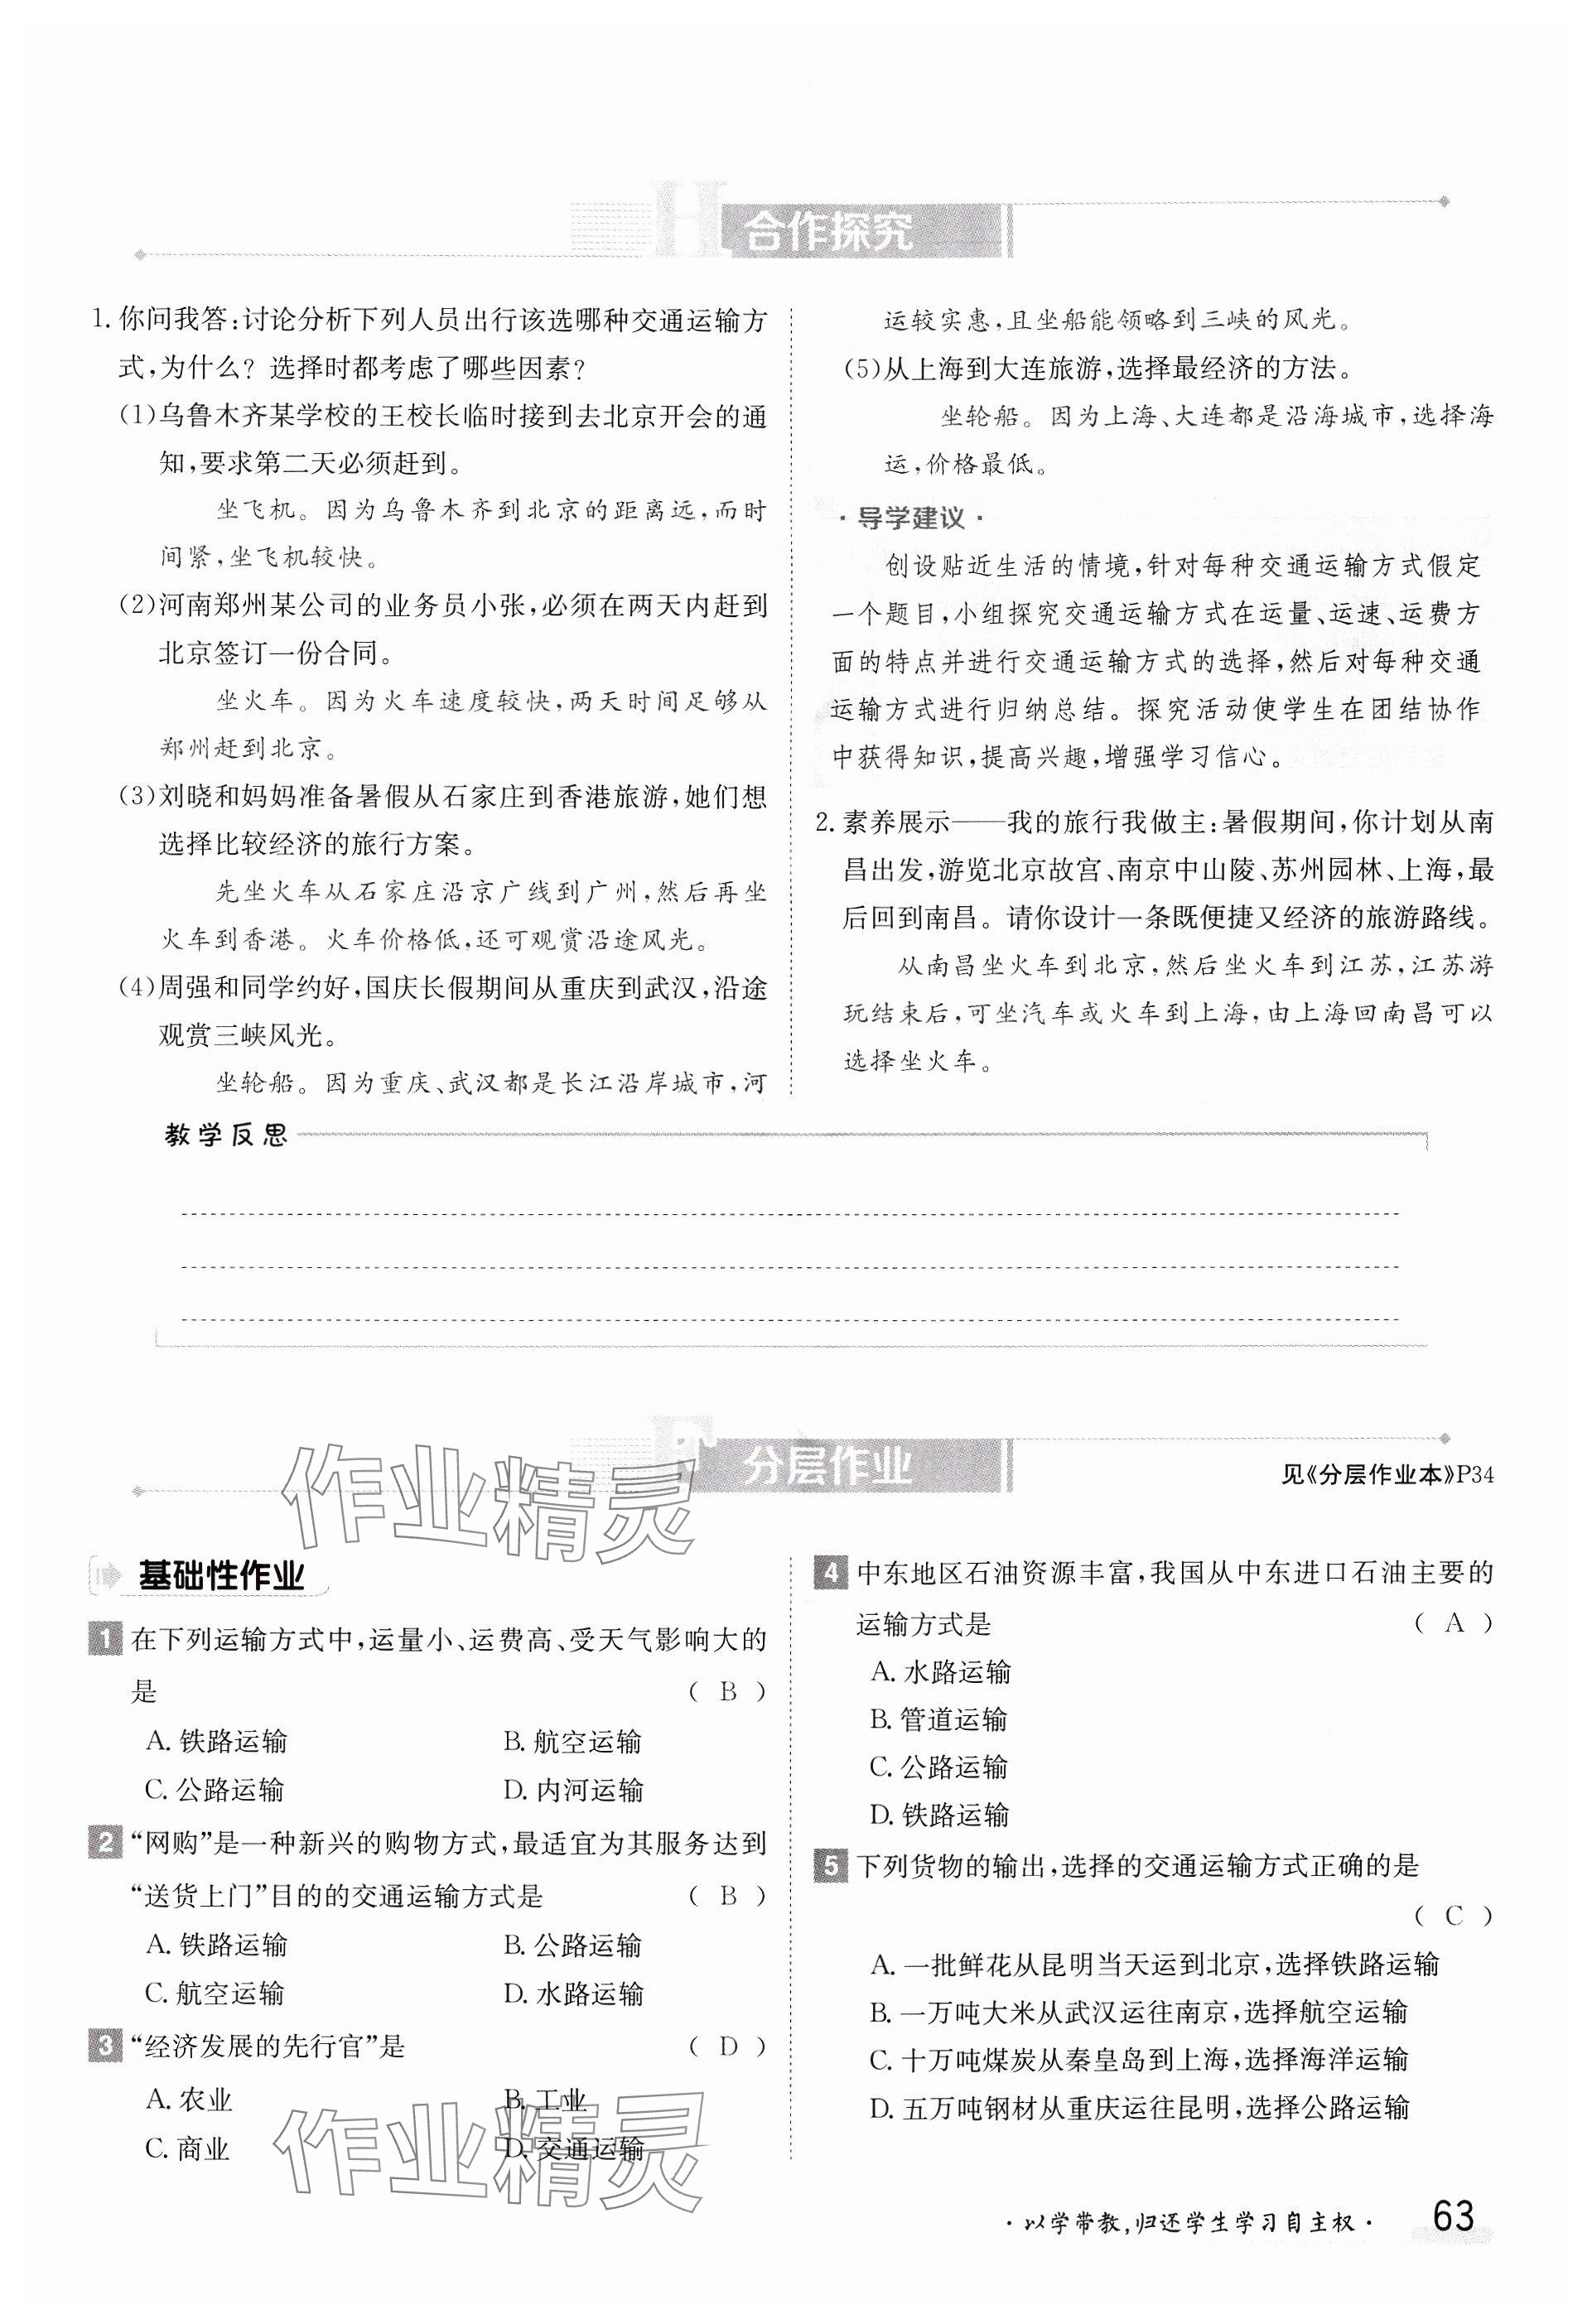 合作探究
1. 你问我答:讨论分析下列人员出行该选哪种交通运输方
式,为什么? 选择时都考虑了哪些因素?
(1)乌鲁木齐某学校的王校长临时接到去北京开会的通
知,要求第二天必须赶到。
坐飞机。因为乌鲁木齐到北京的距离远,而时
间紧,坐飞机较快。
(2)河南郑州某公司的业务员小张,必须在两天内赶到
北京签订一份合同。
坐火车。因为火车速度较快,两天时间足够从
郑州赶到北京。
(3)刘晓和妈妈准备暑假从石家庄到香港旅游,她们想
选择比较经济的旅行方案。
先坐火车从石家庄沿京广线到广州,然后再坐
火车到香港。火车价格低,还可观赏沿途风光。
(4)周强和同学约好,国庆长假期间从重庆到武汉,沿途
观赏三峡风光。
坐轮船。因为重庆、武汉都是长江沿岸城市,河
运较实惠,且坐船能领略到三峡的风光。
(5)从上海到大连旅游,选择最经济的方法。
坐轮船。因为上海、大连都是沿海城市,选择海
运,价格最低。
·导学建议·
创设贴近生活的情境,针对每种交通运输方式假定
一个题目,小组探究交通运输方式在运量、运速、运费方
面的特点并进行交通运输方式的选择,然后对每种交通
运输方式进行归纳总结。探究活动使学生在团结协作
中获得知识,提高兴趣,增强学习信心。
2. 素养展示——我的旅行我做主:暑假期间,你计划从南
昌出发,游览北京故宫、南京中山陵、苏州园林、上海,最
后回到南昌。请你设计一条既便捷又经济的旅游路线。
从南昌坐火车到北京,然后坐火车到江苏,江苏游
玩结束后,可坐汽车或火车到上海,由上海回南昌可以
选择坐火车。
教学反思
分层作业
见《分层作业本》P34
作业精灵
基础性作业
1 在下列运输方式中,运量小、运费高、受天气影响大的
是 ( B )
A. 铁路运输 B. 航空运输
C. 公路运输 D. 内河运输
2 “网购”是一种新兴的购物方式,最适宜为其服务达到
“送货上门”目的的交通运输方式是 ( B )
A. 铁路运输 B. 公路运输
C. 航空运输 D. 水路运输
3 “经济发展的先行官”是 ( D )
A. 农业 B. 工业
C. 商业 D. 交通运输
作业精灵
4 中东地区石油资源丰富,我国从中东进口石油主要的
运输方式是 ( A )
A. 水路运输
B. 管道运输
C. 公路运输
D. 铁路运输
5 下列货物的输出,选择的交通运输方式正确的是
( C )
A. 一批鲜花从昆明当天运到北京,选择铁路运输
B. 一万吨大米从武汉运往南京,选择航空运输
C. 十万吨煤炭从秦皇岛到上海,选择海洋运输
D. 五万吨钢材从重庆运往昆明,选择公路运输
·以学带教,归还学生学习自主权·
63